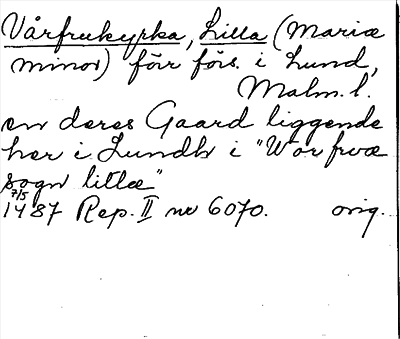 Vårfrukyrka, Lilla (Mariæ
minor) förr förs. i Lund,
Malm. l.
en deres Gaard liggende
her i Lundh i "Wor frvæ
sogn litlæ"
7/5
1487 Rep. II nr 6070. orig.